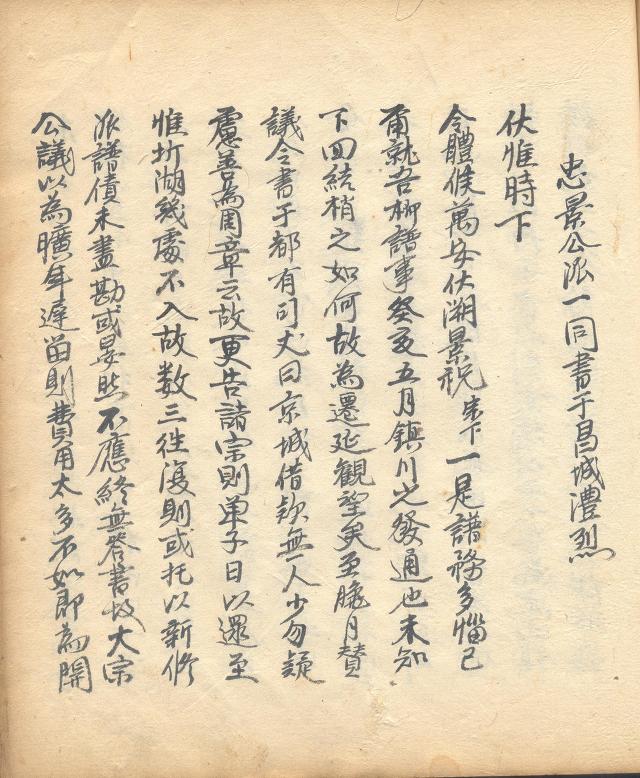 忠景公派一同書于昌城澧烈
伏惟時下
令體候萬安伏溯景祝生下一是譜務多惱已
甭就吾柳譜事癸亥五月鎮川之發通也未知
下回結梢之如何故為遷延観望矣至臘月賛
議令書于都有司丈曰京城借欵無人少勿疑
慮善為周章云故更告諸宗則单子日以還至
惟圻湖幾處不入故数三往復則或托以新修
派譜債未盡勘或晏然不應終無答書故大宗
公議以為曠年遲留則費用太多不如即為開